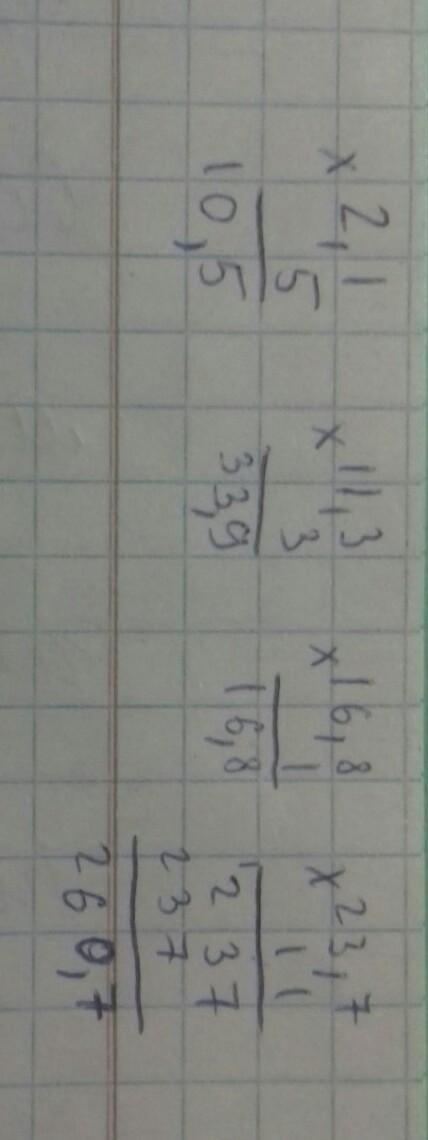 x 2,1
5
10,5
x 11,3
3
33,9
x 16,8
1
16,8
x 23,7
11
237
237
260,7